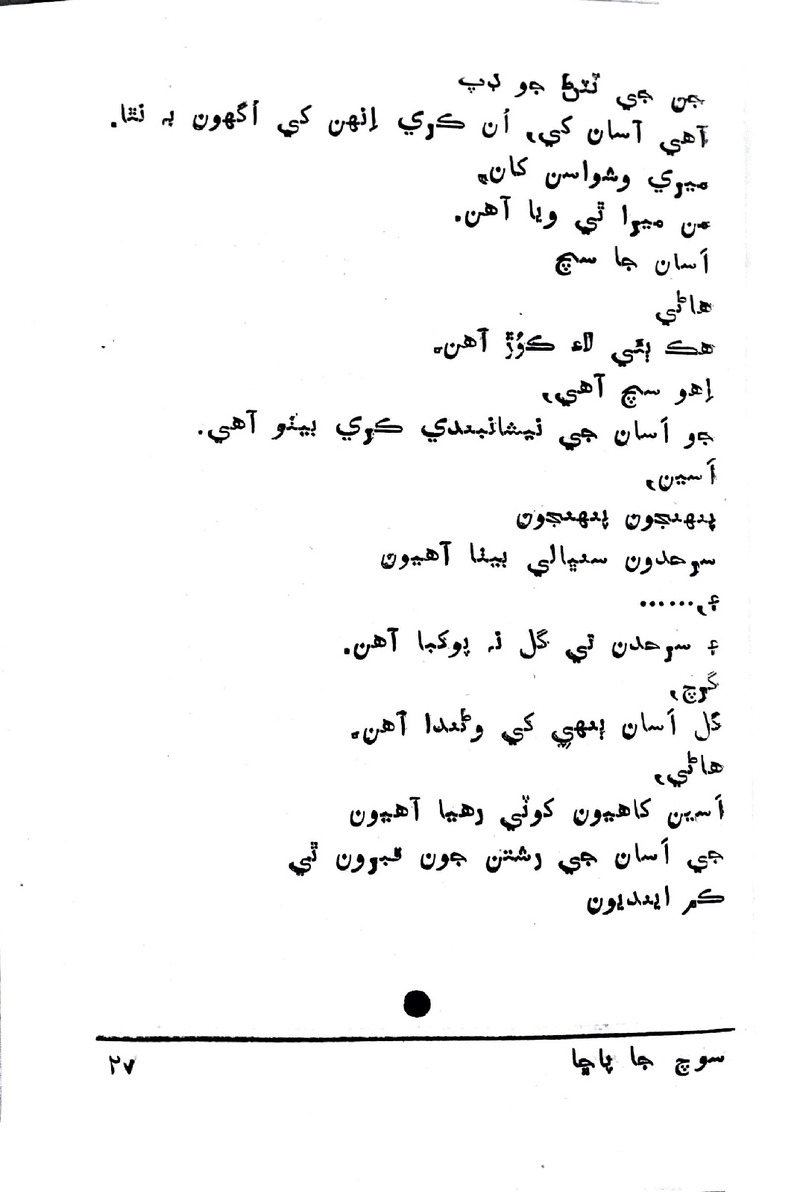 جن جي ٽٽڻ جو ڊپ
آهي آسان کي، اُن ڪري اِنهن کي اُگهون به نٿا.
ميري وشواسن کان،
من ميرا ٿي ويا آهن.
اَسان جا سچ
هاڻي
هڪ ٻئي لاءِ ڪُوڙ آهن.
اِهو سچ آهي،
جو اَسان جي نيشانبندي ڪري بيٺو آهي.
اَسين،
پنهنجون پنهنجون
سرحدون سنڀالي بيٺا آهيون
۽،......
۽ سرحدن تي گل نہ پوکيا آهن.
گرچ،
گل اَسان ٻنهي کي وڻندا آهن.
هاڻي،
اَسين کاهيون کوٽي رهيا آهيون
جي اَسان جي رشتن جون قبرون ٿي
ڪم اينديون
سوچ جا پاڇا
٢٧